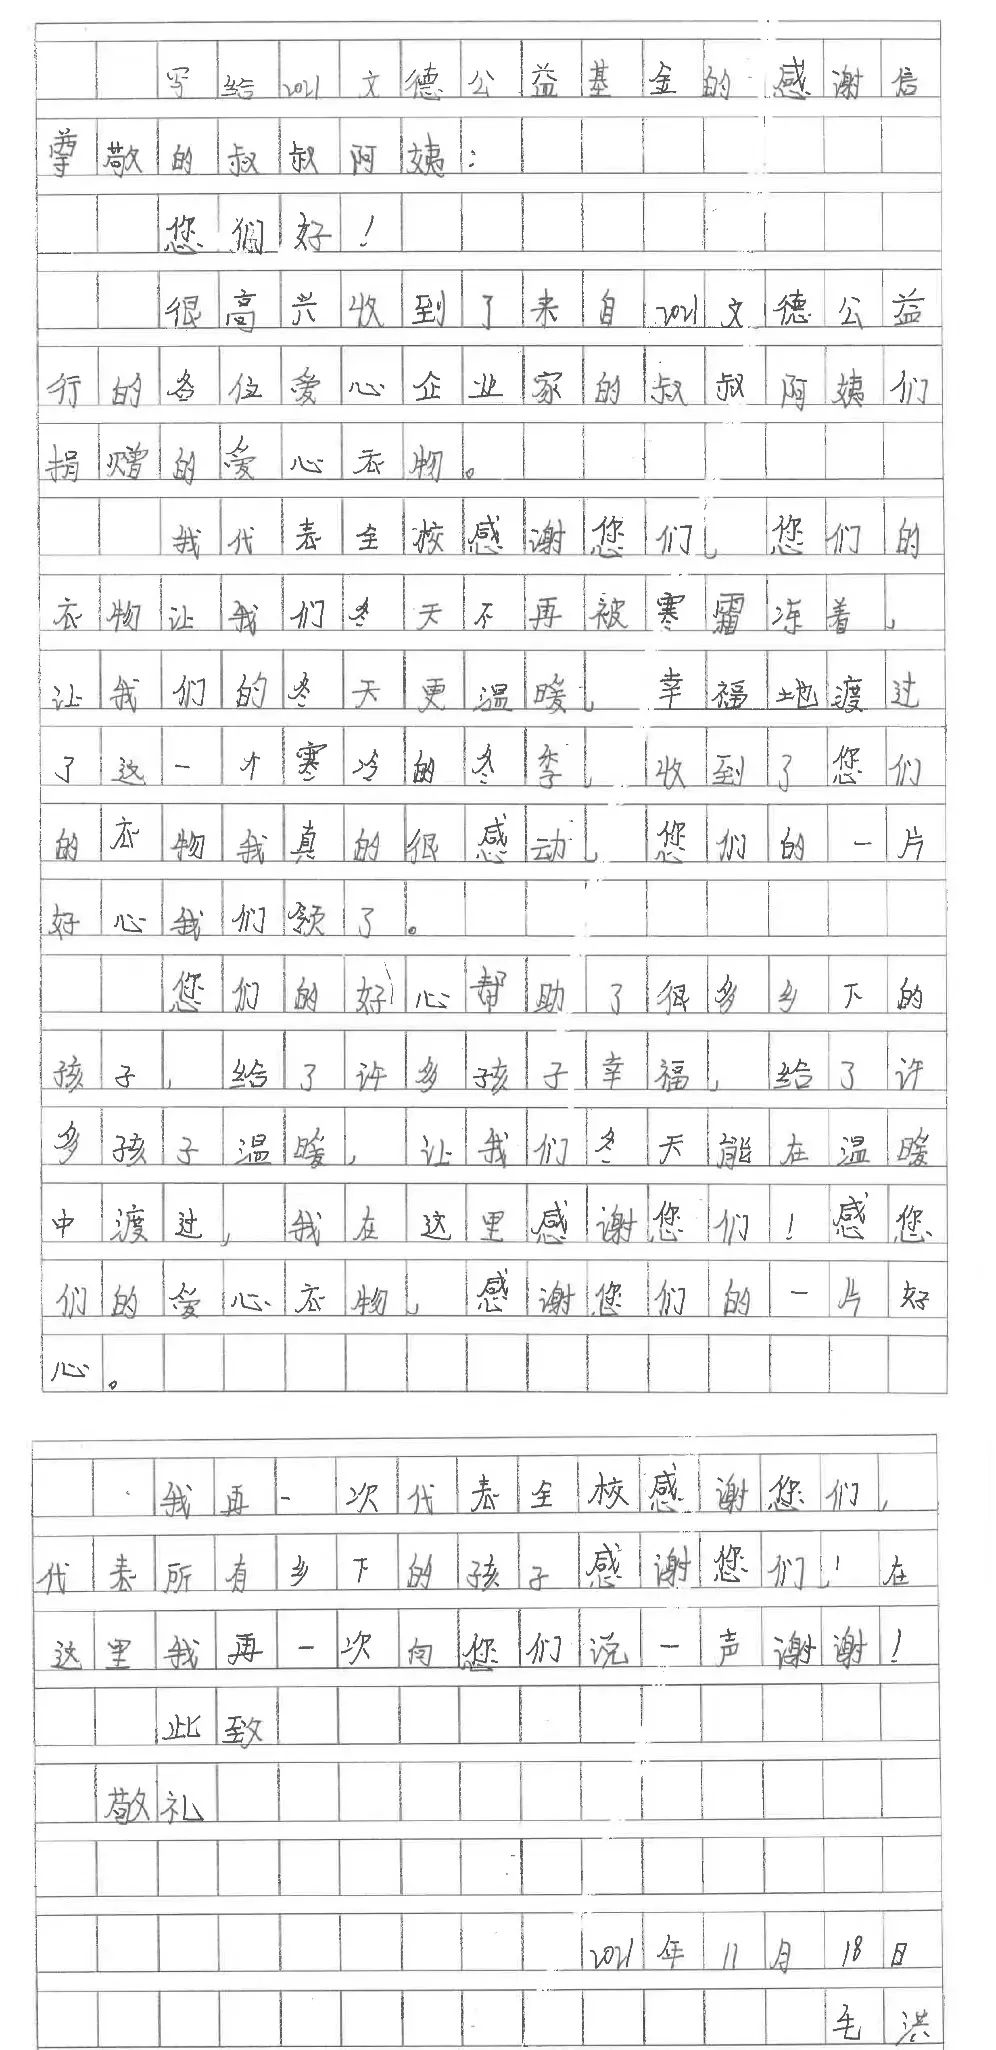 写给2021文德公益基金的感谢信
尊敬的叔叔阿姨：
您们好！
很高兴收到了来自2021文德公益
行的各位爱心企业家的叔叔阿姨们
捐赠的爱心衣物。
我代表全校感谢您们，您们的
衣物让我们冬天不再被寒霜冻着，
让我们的冬天更温暖，幸福地渡过
了这一个寒冷的冬季，收到了您们
的衣物我真的很感动，您们的一片
好心我们领了。
您们的好心帮助了很多乡下的
孩子，给了许多孩子幸福，给了许
多孩子温暖，让我们冬天能在温暖
中渡过，我在这里感谢您们！感您
们的爱心衣物，感谢您们的一片好
心。
我再一次代表全校感谢您们，
代表所有乡下的孩子感谢您们！在
这里我再一次向您们说一声谢谢！
此致
敬礼
2021年11月18日
毛洪